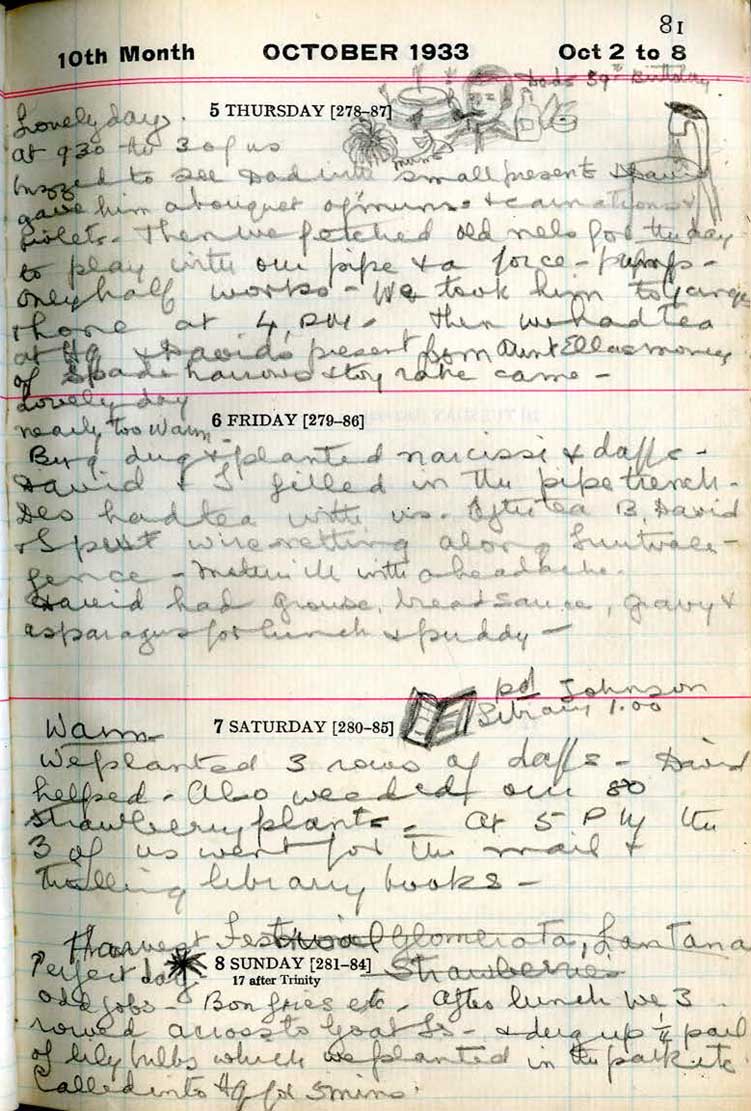 81
10th Month OCTOBER 1933 Oct 2 to 8
Dad's 59th Birthday
Lovely day.
5 THURSDAY [278-87]
at 9 30 the 3 of us
mums
buzzed to see Dad with small present & David
gave him a bouquet of mums & carnations &
violets. Then we fetched old nels for the day
to play with our pipe & a force-pump -
only half works - We took him to Gange
shore at 4, PM. Then we had tea
at Hq & David's present from Aunt Ella's money
of spade harrows & toy rake came -
Lovely day
nearly too warm -
6 FRIDAY [279-86]
dug & planted narcissi & daffs -
David & I filled in the pipe trench -
Des had tea with us. After tea B, David
& I put wire netting along
fence - ill with a headache.
David had grouse, bread sauce, gravy &
asparagus for lunch & puddy -
pd Johnson
Library 1.00
Warm
7 SATURDAY [280-85]
We planted 3 rows of daffs - David
helped. Also weeded our 80
strawberry plants. At 5 PM the
3 of us went for the mail &
travelling library books -
Harvest Festival Glomerata, Lantana
Perfect day
8 SUNDAY [281-84] Strawberries
17 after Trinity
odd jobs - Bonfires etc. After lunch we 3
rowed across to Goat Is - & dug up ½ pail
of lily bulbs which we planted in the park etc
Called into Hq for 5 mins.